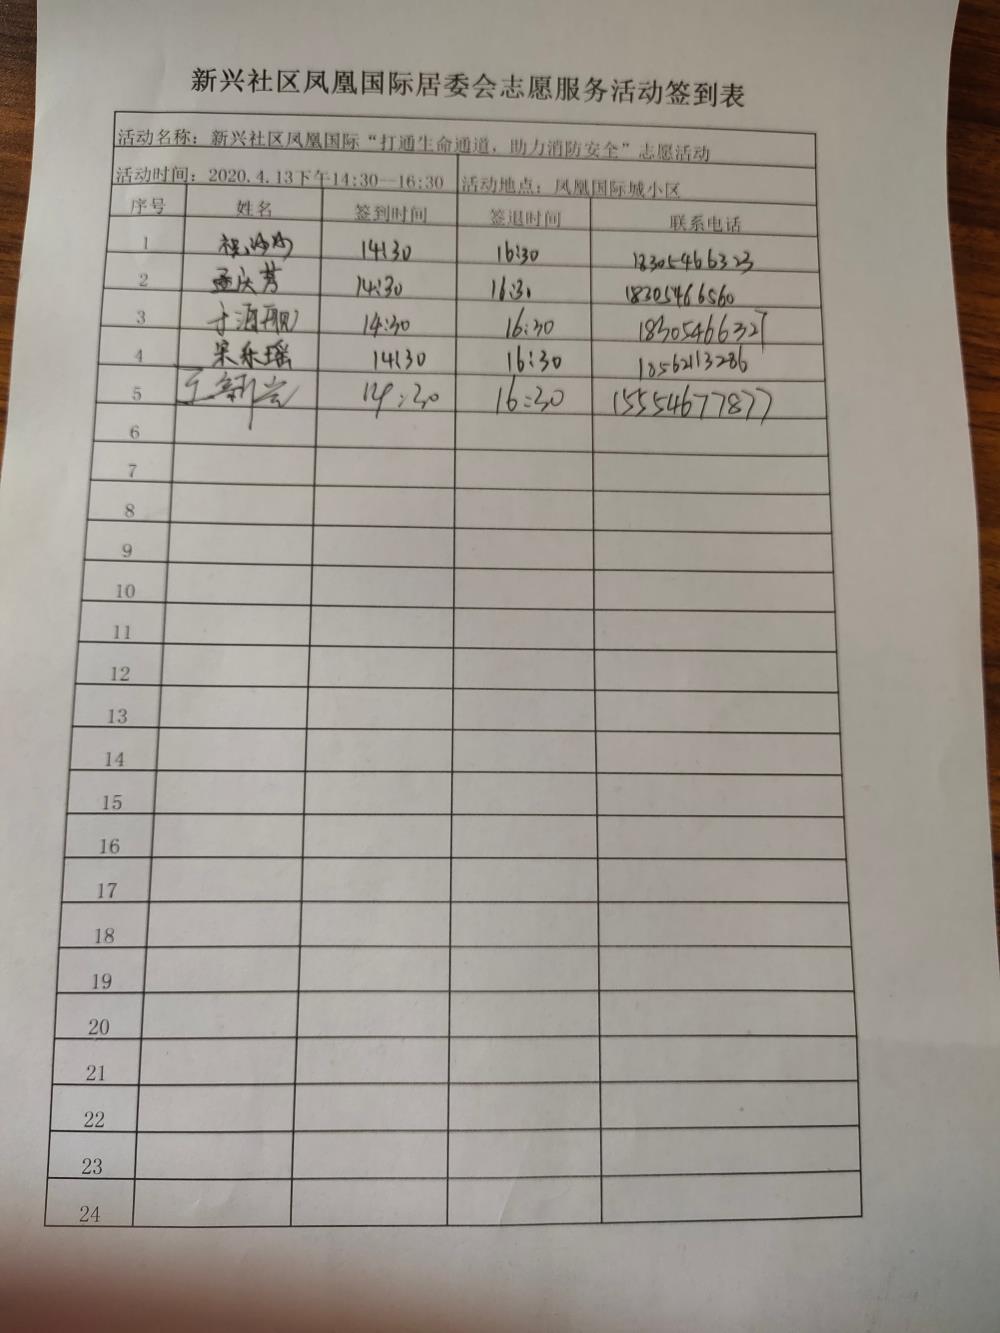 新兴社区凤凰国际居委会志愿服务活动签到表
活动名称：新兴社区凤凰国际“打通生命通道，助力消防安全”志愿活动
活动时间：2020.4.13下午14:30—16:30 活动地点：凤凰国际城小区
序号 姓名 签到时间 签退时间 联系电话
1 14:30 16:30 18305466323
2 孟庆芳 14:30 16:30 18305466560
3 14:30 16:30 18305466327
4 宋乐瑶 14:30 16:30 18562113286
5 王新岩 14:30 16:30 15554677877
6
7
8
9
10
11
12
13
14
15
16
17
18
19
20
21
22
23
24